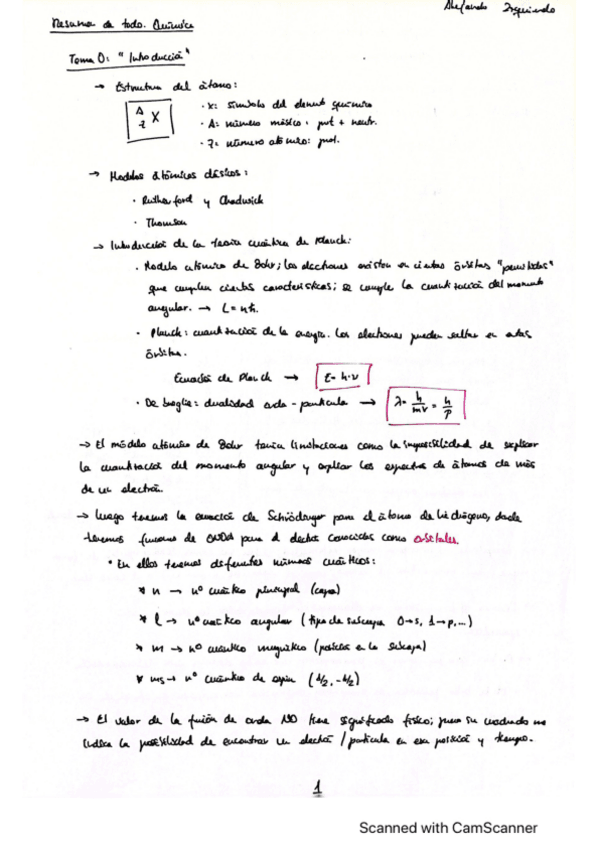 Alejandro Izquierdo
Resumen de todo. Química
Tema 0: "Introducción"
→ Estructura del átomo:
A
Z X
· X: símbolo del elemento químico
· A: número másico: prot + neutr.
· Z: número atómico: prot.
→ Modelos atómicos clásicos:
· Rutherford y Chadwick
· Thomson
→ Introducción de la teoría cuántica de Planck:
· Modelo atómico de Bohr; los electrones existen en ciertas órbitas "permitidas"
que cumplen ciertas características; se cumple la cuantización del momento
angular. → L = nħ.
· Planck: cuantización de la energía. Los electrones pueden saltar en estas
órbitas.
Ecuación de Planck → E = h·ν
· De Broglie: dualidad onda - partícula → λ = h/mv = h/p
→ El módelo atómico de Bohr tenía limitaciones como la imposibilidad de explicar
la cuantización del momento angular y explicar los espectros de átomos de más
de un electrón.
→ Luego tenemos la ecuación de Schrödinger para el átomo de hidrógeno, donde
tenemos funciones de onda para el electrón conocidas como orbitales.
· En ellos tenemos diferentes números cuánticos:
* n → nº cuántico principal (capa)
* l → nº cuántico angular (tipo de subcapa 0→s, 1→p, ...)
* m → nº cuántico magnético (posición en la subcapa)
* ms → nº cuántico de spin (1/2, -1/2)
→ El valor de la función de onda NO tiene significado físico; pero su cuadrado nos
indica la posibilidad de encontrar un electrón / partícula en esa posición y tiempo.
1
Scanned with CamScanner